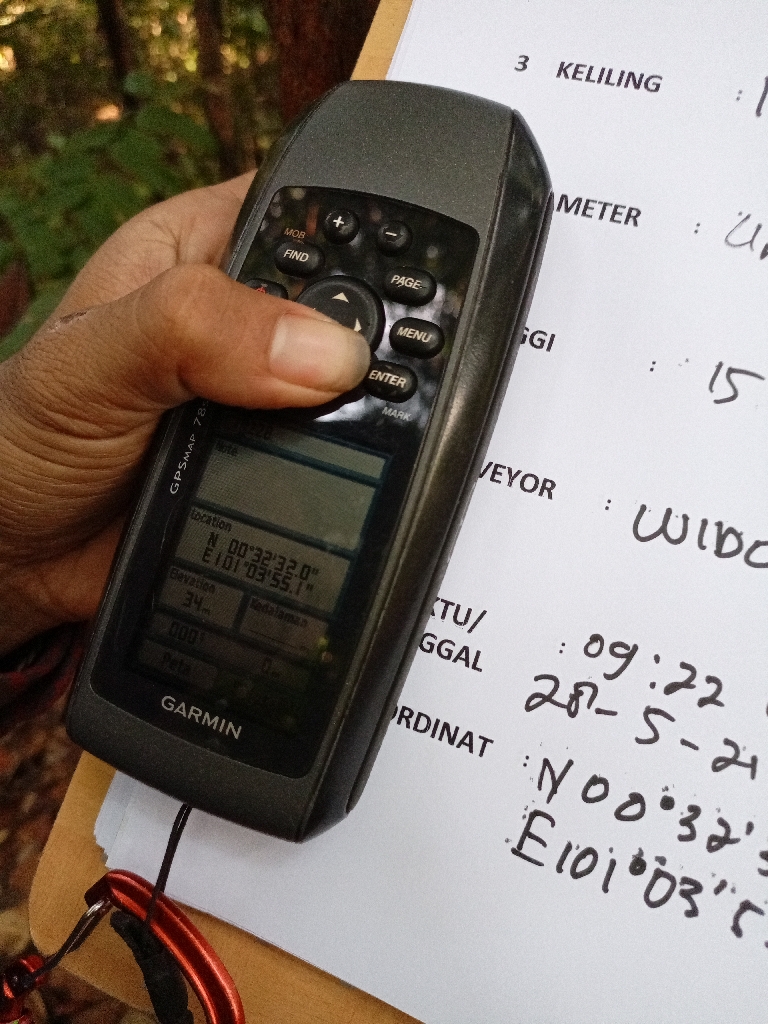 3 KELILING :
METER :
GGI : 15
VEYOR : WIDO
KTU/ : 09:22
GGAL 28-5-21
ORDINAT : N 00°32'3
E101°03'5
MOB
+
-
FIND
PAGE
MENU
ENTER
MARK
GPSMAP 78s
Note
Location
N 00°32'32.0"
E101°03'55.1"
Elevation
Kedalaman
34m
000°
0m
Peta
GARMIN